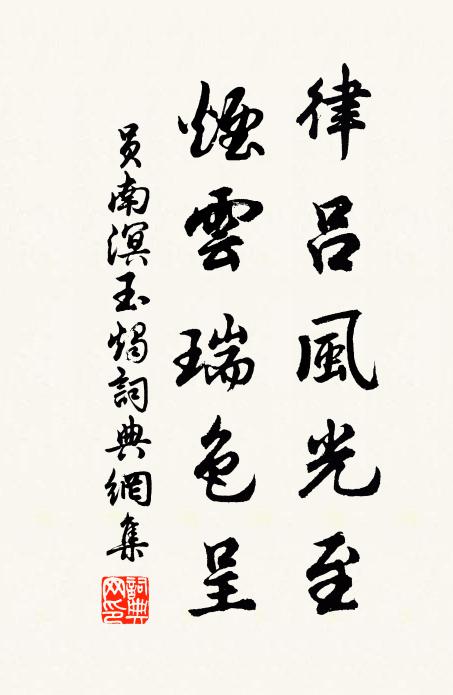 律呂風光至
煙雲瑞色呈
員南溟玉燭詞典網集
詞典網印